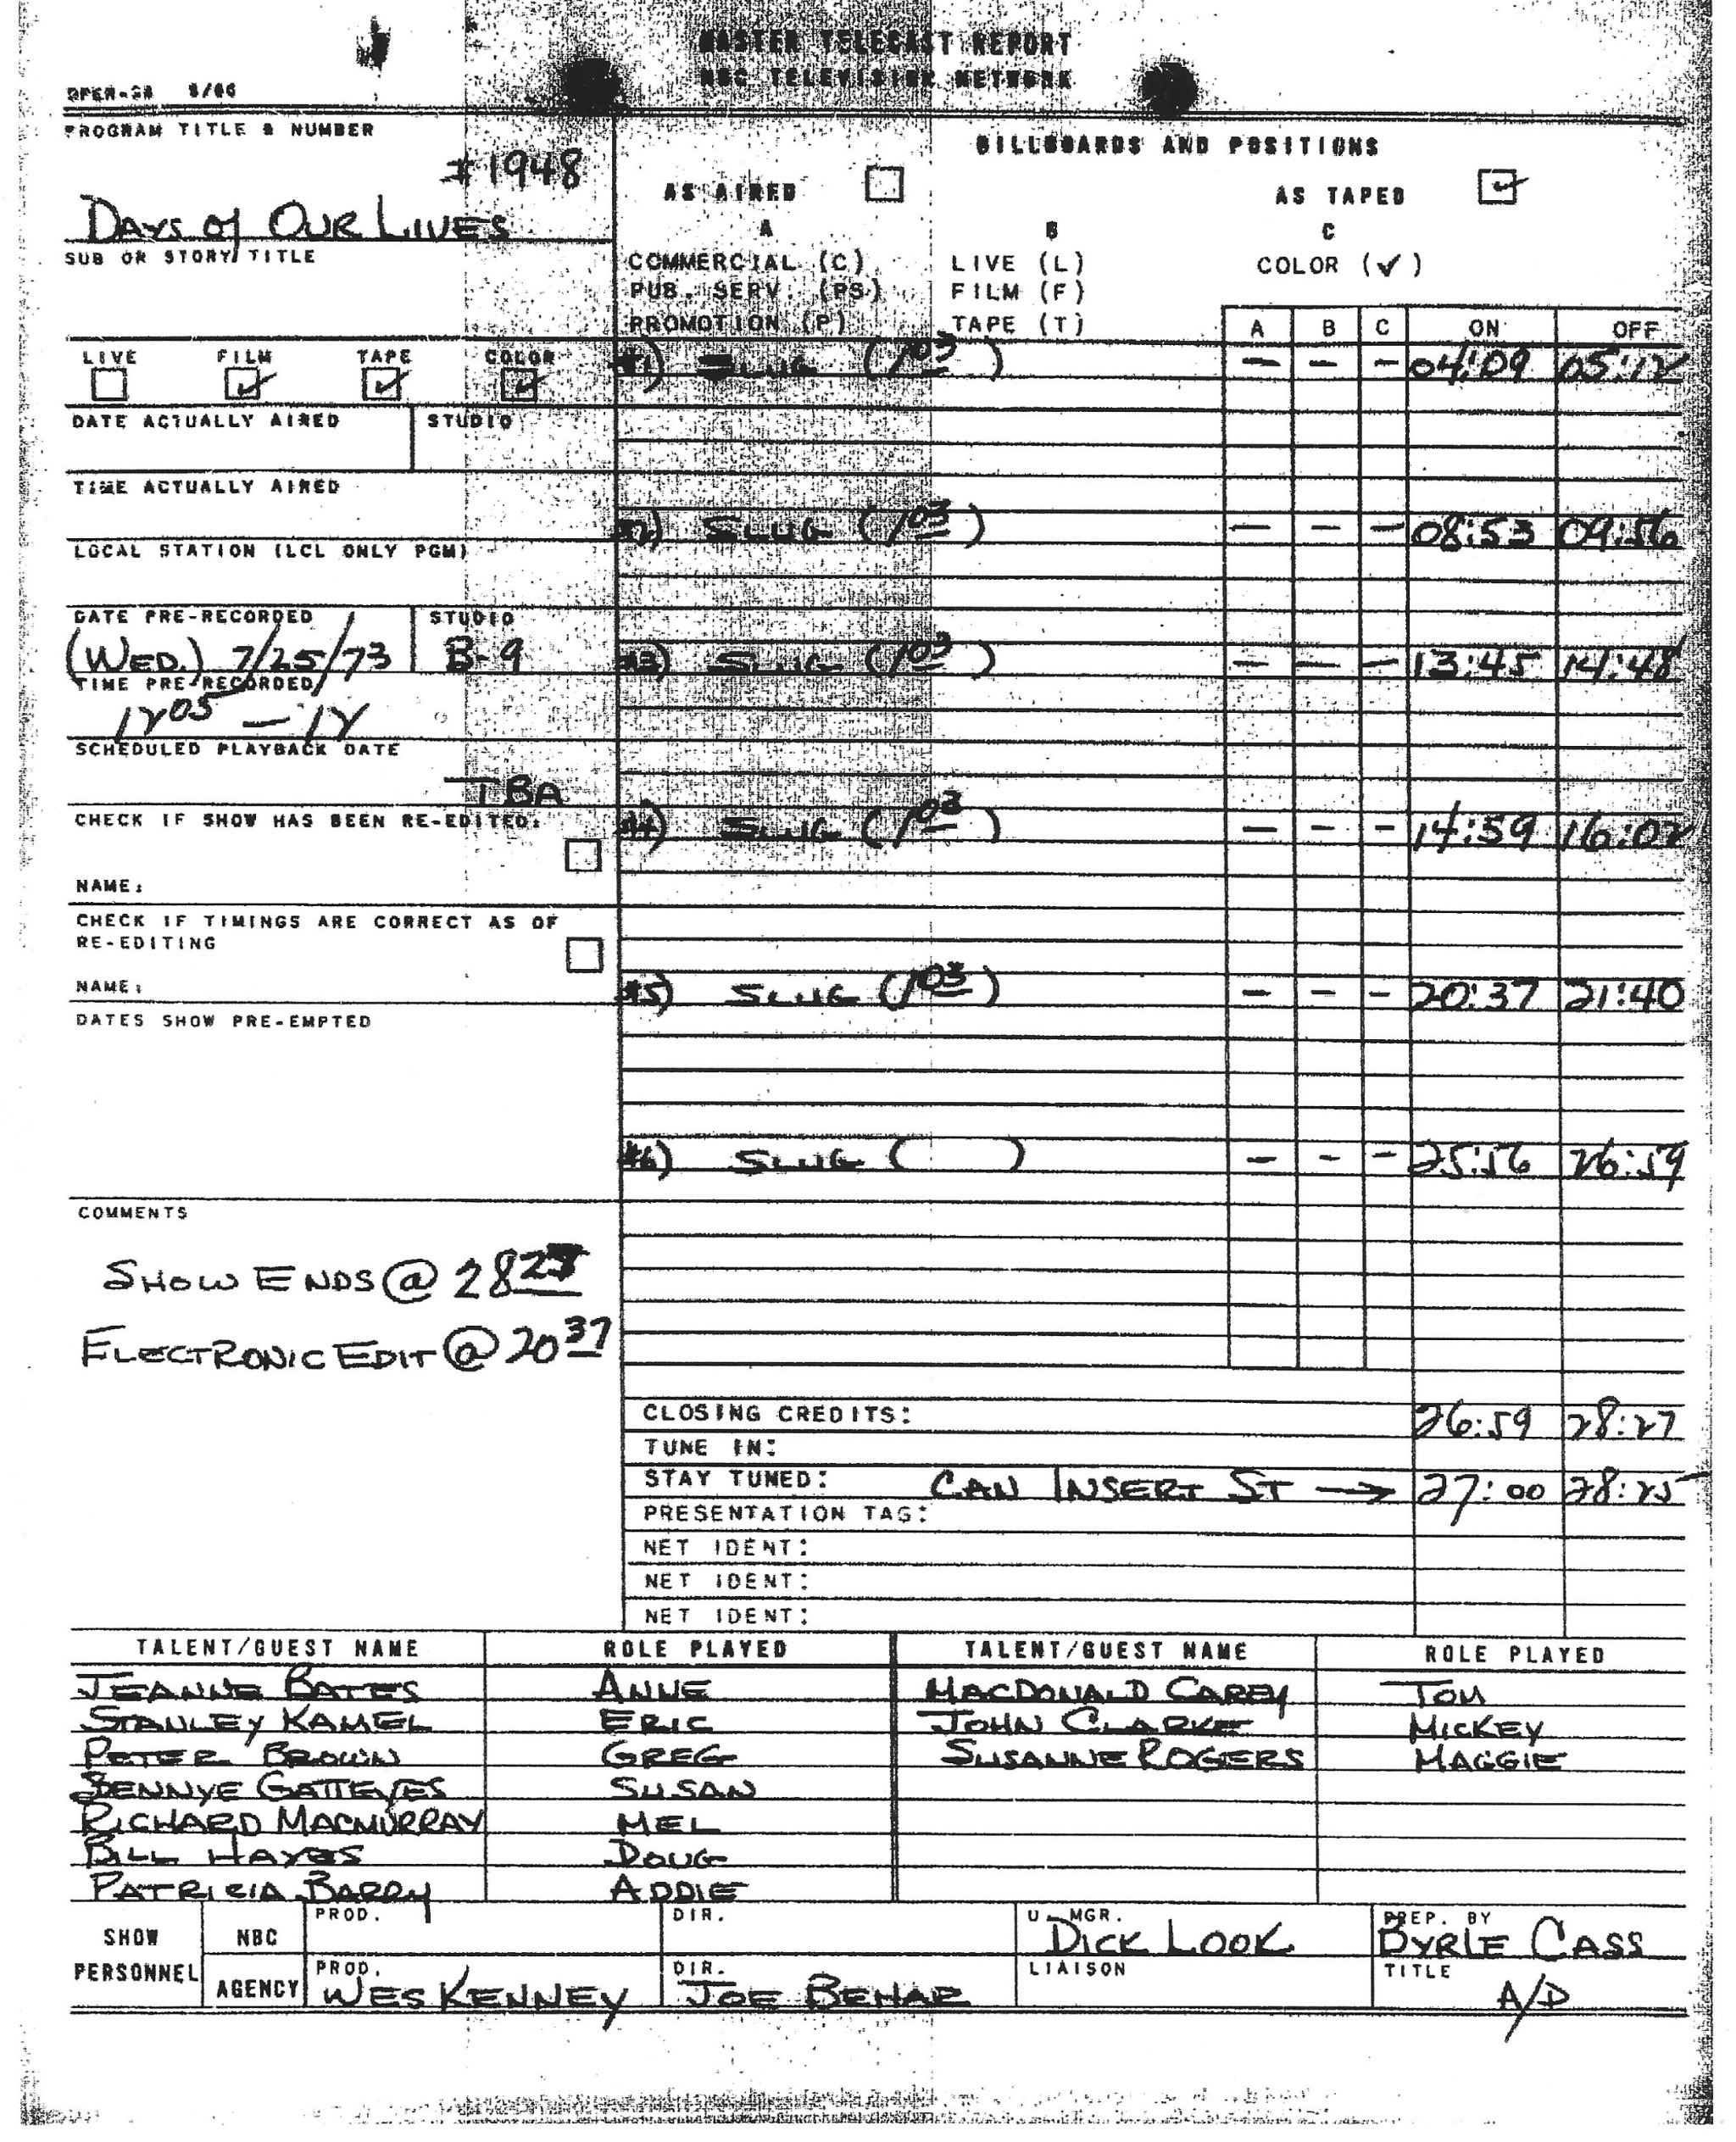 MASTER TELECAST REPORT
NBC TELEVISION NETWORK
OPER-28 5/66
PROGRAM TITLE & NUMBER
#1948
DAYS of OUR LIVES
SUB OR STORY TITLE
LIVE FILM TAPE COLOR
DATE ACTUALLY AIRED STUDIO
TIME ACTUALLY AIRED
LOCAL STATION (LCL ONLY PGM)
DATE PRE-RECORDED STUDIO
(WED.) 7/25/73 B-9
TIME PRE-RECORDED
12 05 - 12
SCHEDULED PLAYBACK DATE
TBA
CHECK IF SHOW HAS BEEN RE-EDITED:
NAME:
CHECK IF TIMINGS ARE CORRECT AS OF
RE-EDITING
NAME:
DATES SHOW PRE-EMPTED
COMMENTS
SHOW ENDS @ 28
ELECTRONIC EDIT @ 20 37
BILLBOARDS AND POSITIONS
AS AIRED AS TAPED
A B C
COMMERCIAL (C) LIVE (L) COLOR (✓)
PUB. SERV. (PS) FILM (F)
PROMOTION (P) TAPE (T) A B C ON OFF
#1) SLUG (1 03) - - - 04:09 05:12
#2) SLUG (1 03) - - - 08:53 09:56
#3) SLUG (1 03) - - - 13:45 14:48
#4) SLUG (1 03) - - - 14:59 16:02
#5) SLUG (1 03) - - - 20:37 21:40
#6) SLUG ( ) - - - 25:56 26:59
CLOSING CREDITS: 26:59 28:27
TUNE IN:
STAY TUNED: CAN INSERT ST → 27:00 28:25
PRESENTATION TAG:
NET IDENT:
NET IDENT:
NET IDENT:
TALENT/GUEST NAME ROLE PLAYED TALENT/GUEST NAME ROLE PLAYED
JEANNE BATES ANNE MACDONALD CAREY TOM
STANLEY KAMEL ERIC JOHN CLARKE MICKEY
PETER BROWN GREG SUSANNE ROGERS MAGGIE
BENNYE GATTEYES SUSAN
RICHARD MACMURRAY MEL
BILL HAYES DOUG
PATRICIA BARRY ADDIE
SHOW PERSONNEL
NBC PROD. DIR. U. MGR. DICK LOOK PREP. BY BYRLE CASS
AGENCY PROD. WES KENNEY DIR. JOE BEHAR LIAISON TITLE A/D